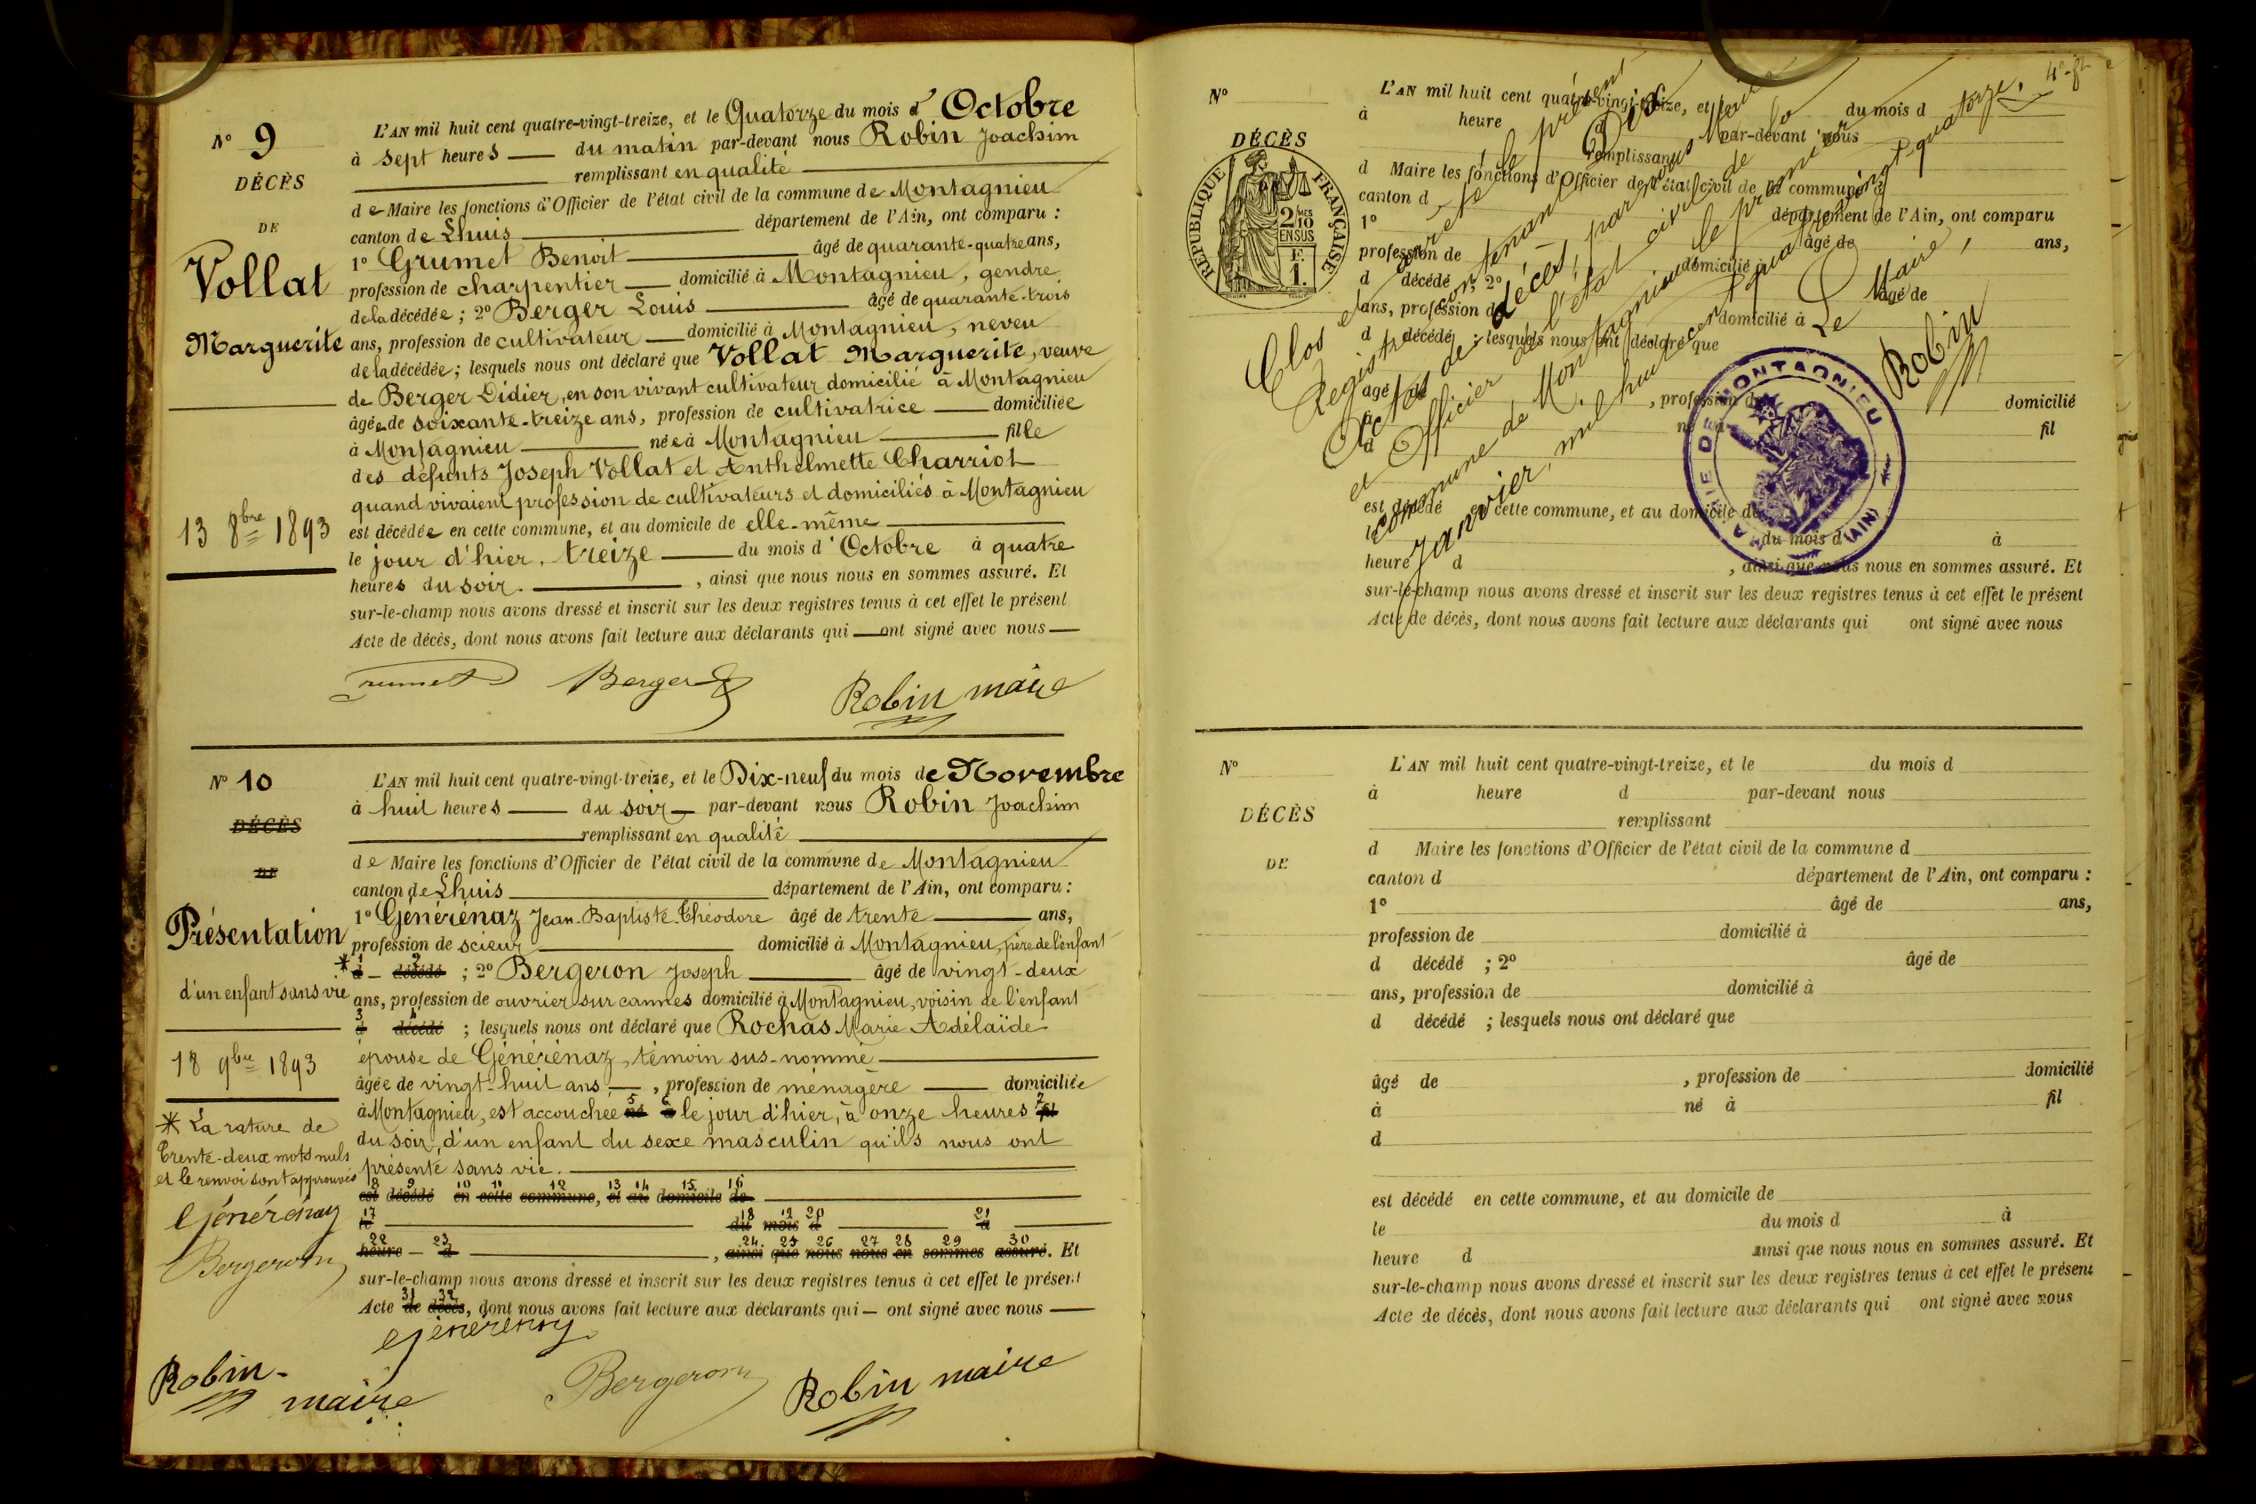 N° 9
DÉCÈS
DE
Vollat
Marguerite
13 8bre 1893
L'AN mil huit cent quatre-vingt-treize, et le Quatorze du mois d'Octobre
à sept heures du matin par-devant nous Robin Joachim
remplissant en qualité
de Maire les fonctions d'Officier de l'état civil de la commune de Montagnieu
canton de Lhuis département de l'Ain, ont comparu :
1° Grumet Benoit âgé de quarante-quatre ans,
profession de charpentier domicilié à Montagnieu, gendre
de la décédée ; 2° Berger Louis âgé de quarante-trois
ans, profession de cultivateur domicilié à Montagnieu, neveu
de la décédée ; lesquels nous ont déclaré que Vollat Marguerite, veuve
de Berger Didier, en son vivant cultivateur domicilié à Montagnieu
âgée de soixante-treize ans, profession de cultivatrice domiciliée
à Montagnieu née à Montagnieu fille
des défunts Joseph Vollat et Anthelmette Charriot
quand vivaient profession de cultivateurs et domiciliés à Montagnieu
est décédée en cette commune, et au domicile de elle-même
le jour d'hier, treize du mois d'Octobre à quatre
heures du soir. , ainsi que nous nous en sommes assuré. Et
sur-le-champ nous avons dressé et inscrit sur les deux registres tenus à cet effet le présent
Acte de décès, dont nous avons fait lecture aux déclarants qui ont signé avec nous
Grumet Berger Robin maire
N° 10
DÉCÈS
DE
Présentation
d'un enfant sans vie
18 9bre 1893
* La rature de
trente-deux mots nuls
et le renvoi sont approuvés
Génèrénaz
Bergeron
Robin
maire
L'AN mil huit cent quatre-vingt-treize, et le Dix-neuf du mois de Novembre
à huit heures du soir par-devant nous Robin Joachim
remplissant en qualité
de Maire les fonctions d'Officier de l'état civil de la commune de Montagnieu
canton de Lhuis département de l'Ain, ont comparu :
1° Génèrénaz Jean-Baptiste-Théodore âgé de trente ans,
profession de scieur domicilié à Montagnieu, père de l'enfant
* 1 d 2 décédé ; 2° Bergeron Joseph âgé de vingt-deux
ans, profession de ouvrier sur cannes domicilié à Montagnieu, voisin de l'enfant
3 d 4 décédé ; lesquels nous ont déclaré que Rochas Marie Adélaïde
épouse de Génèrénaz, témoin sus-nommé
âgée de vingt-huit ans , profession de ménagère domiciliée
à Montagnieu, est accouchée 5 né 6 à le jour d'hier, à onze heures 7 fil
du soir, d'un enfant du sexe masculin qu'ils nous ont
présenté sans vie.
8 9 10 11 12 13 14 15 16
est décédé en cette commune, et au domicile de
17 18 19 20 21
le du mois d à
22 23 24 25 26 27 28 29 30
heure d , ainsi que nous nous en sommes assuré. Et
sur-le-champ nous avons dressé et inscrit sur les deux registres tenus à cet effet le présent
31 32
Acte de décès, dont nous avons fait lecture aux déclarants qui ont signé avec nous
Génèrénaz
Bergeron Robin maire
N°
DÉCÈS
RÉPUBLIQUE FRANÇAISE
2 MES 10 EN SUS
F. 1.
L'AN mil huit cent quatre-vingt-treize, et le du mois d
à heure d par-devant nous
remplissant
d Maire les fonctions d'Officier de l'état civil de la commune d
canton d département de l'Ain, ont comparu
1° âgé de ans,
profession de domicilié à
d décédé ; 2° âgé de
ans, profession de domicilié à
d décédé ; lesquels nous ont déclaré que
âgé de , profession de domicilié
à né à fil
d
est décédé en cette commune, et au domicile de
le du mois d à
heure d , ainsi que nous nous en sommes assuré. Et
sur-le-champ nous avons dressé et inscrit sur les deux registres tenus à cet effet le présent
Acte de décès, dont nous avons fait lecture aux déclarants qui ont signé avec nous
Clos et arrêté le présent
Registre contenant Dix
Actes de décès, par nous Maire
et Officier de l'état civil de la
commune de Montagnieu le premier
Janvier, mil huit cent quatre-vingt-quatorze.
Le Maire,
Robin
MAIRIE DE MONTAGNIEU (AIN)
N°
DÉCÈS
DE
L'AN mil huit cent quatre-vingt-treize, et le du mois d
à heure d par-devant nous
remplissant
d Maire les fonctions d'Officier de l'état civil de la commune d
canton d département de l'Ain, ont comparu :
1° âgé de ans,
profession de domicilié à
d décédé ; 2° âgé de
ans, profession de domicilié à
d décédé ; lesquels nous ont déclaré que
âgé de , profession de domicilié
à né à fil
d
est décédé en cette commune, et au domicile de
le du mois d à
heure d ainsi que nous nous en sommes assuré. Et
sur-le-champ nous avons dressé et inscrit sur les deux registres tenus à cet effet le présent
Acte de décès, dont nous avons fait lecture aux déclarants qui ont signé avec nous